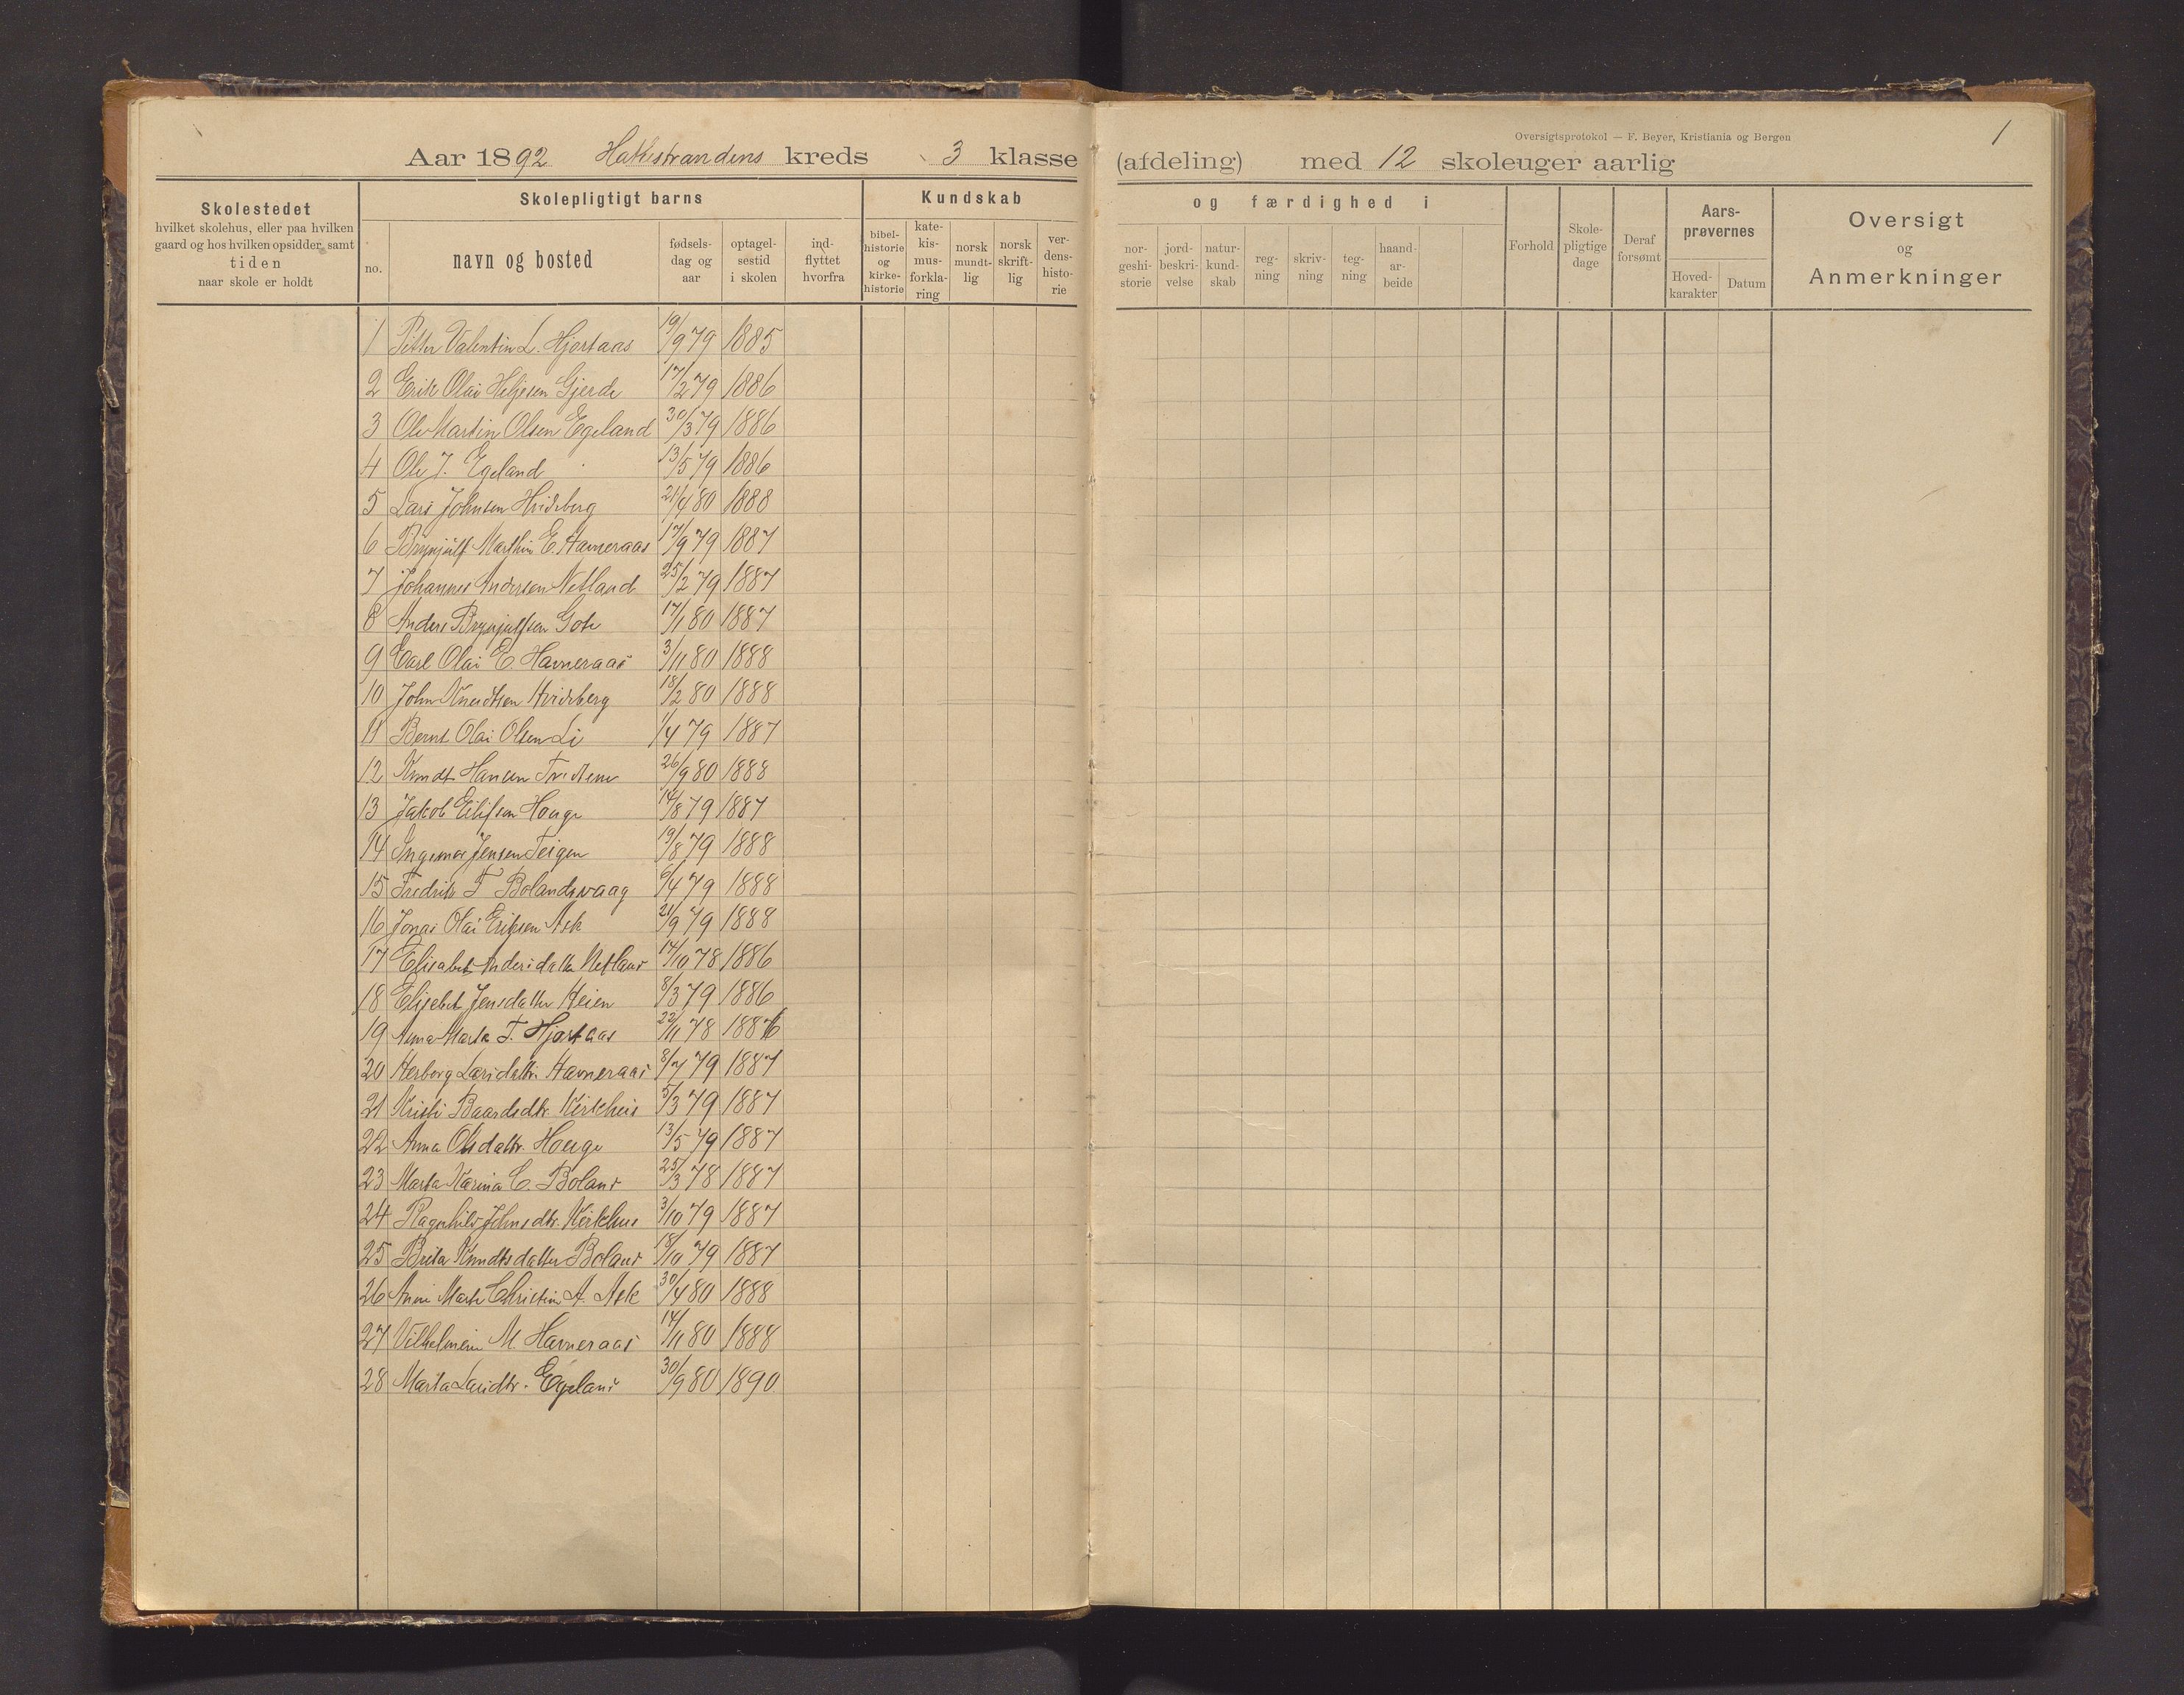 Oversigtsprotokol — F. Beyer, Kristiania og Bergen
1
Aar 1892 Hatlestrandens kreds 3 klasse (afdeling) med 12 skoleuger aarlig
Skolestedet
hvilket skolehus, eller paa hvilken
gaard og hos hvilken opsidder, samt
tiden
naar skole er holdt
Skolepligtigt barns
no.
navn og bosted
fødsels-
dag og
aar
optagel-
sestid
i skolen
ind-
flyttet
hvorfra
Kundskab
bibel-
historie
og
kirke-
historie
kate-
kis-
mus-
forkla-
ring
norsk
mundt-
lig
norsk
skrift-
lig
ver-
dens-
histo-
rie
og færdighed i
nor-
geshi-
storie
jord-
beskri-
velse
natur-
kund-
skab
reg-
ning
skriv-
ning
teg-
ning
haand-
ar-
beide
Forhold
Skole-
pligtige
dage
Deraf
forsømt
Aars-
prøvernes
Hoved-
karakter
Datum
Oversigt
og
Anmerkninger
1 Petter Valentin L. Hjortaas 19/9 79 1885
2 Erik Olai Helgesen Gjerde 17/2 79 1886
3 Ole Martin Olsen Egeland 30/3 79 1886
4 Ole J. Egeland 13/5 79 1886
5 Lars Johnsen Hvidberg 21/4 80 1888
6 Brynjulf Marthin E. Havneraas 17/9 79 1887
7 Johannes Andersen Netland 25/2 79 1887
8 Anders Brynjulfsen Gote 17/1 80 1887
9 Carl Olai E. Havneraas 3/11 80 1888
10 John Knudtsen Hvidberg 18/2 80 1888
11 Bernt Olai Olsen Li 1/4 79 1887
12 Knudt Hansen 26/9 80 1888
13 Jakob Eilifsen Houge 14/8 79 1887
14 Ingemar Jensen Teigen 19/8 79 1888
15 Fredrik F Bolandsvaag 6/4 79 1888
16 Jonas Olai Eriksen Ask 21/9 79 1888
17 Elisabet Andersdatter Netland 17/10 78 1886
18 Elisebet Jensdatter Heien 8/3 79 1886
19 Anna Marta T. Hjortaas 22/11 78 1886
20 Herborg Larsdattr. Havneraas 8/7 79 1887
21 Kristi Baardsdtr. Kirkhus 5/3 79 1887
22 Anna Olsdattr. Houge 13/5 79 1887
23 Marta Karina C. Boland 25/3 78 1887
24 Ragnhild Johnsdtr. Kirkhus 3/10 79 1887
25 Brita Knudtsdatter Boland 18/10 79 1887
26 Anne Marte Christine A. Ask 30/4 80 1888
27 Vilhelmine M. Havneraas 17/11 80 1888
28 Marta Larsdtr. Egeland 30/9 80 1890